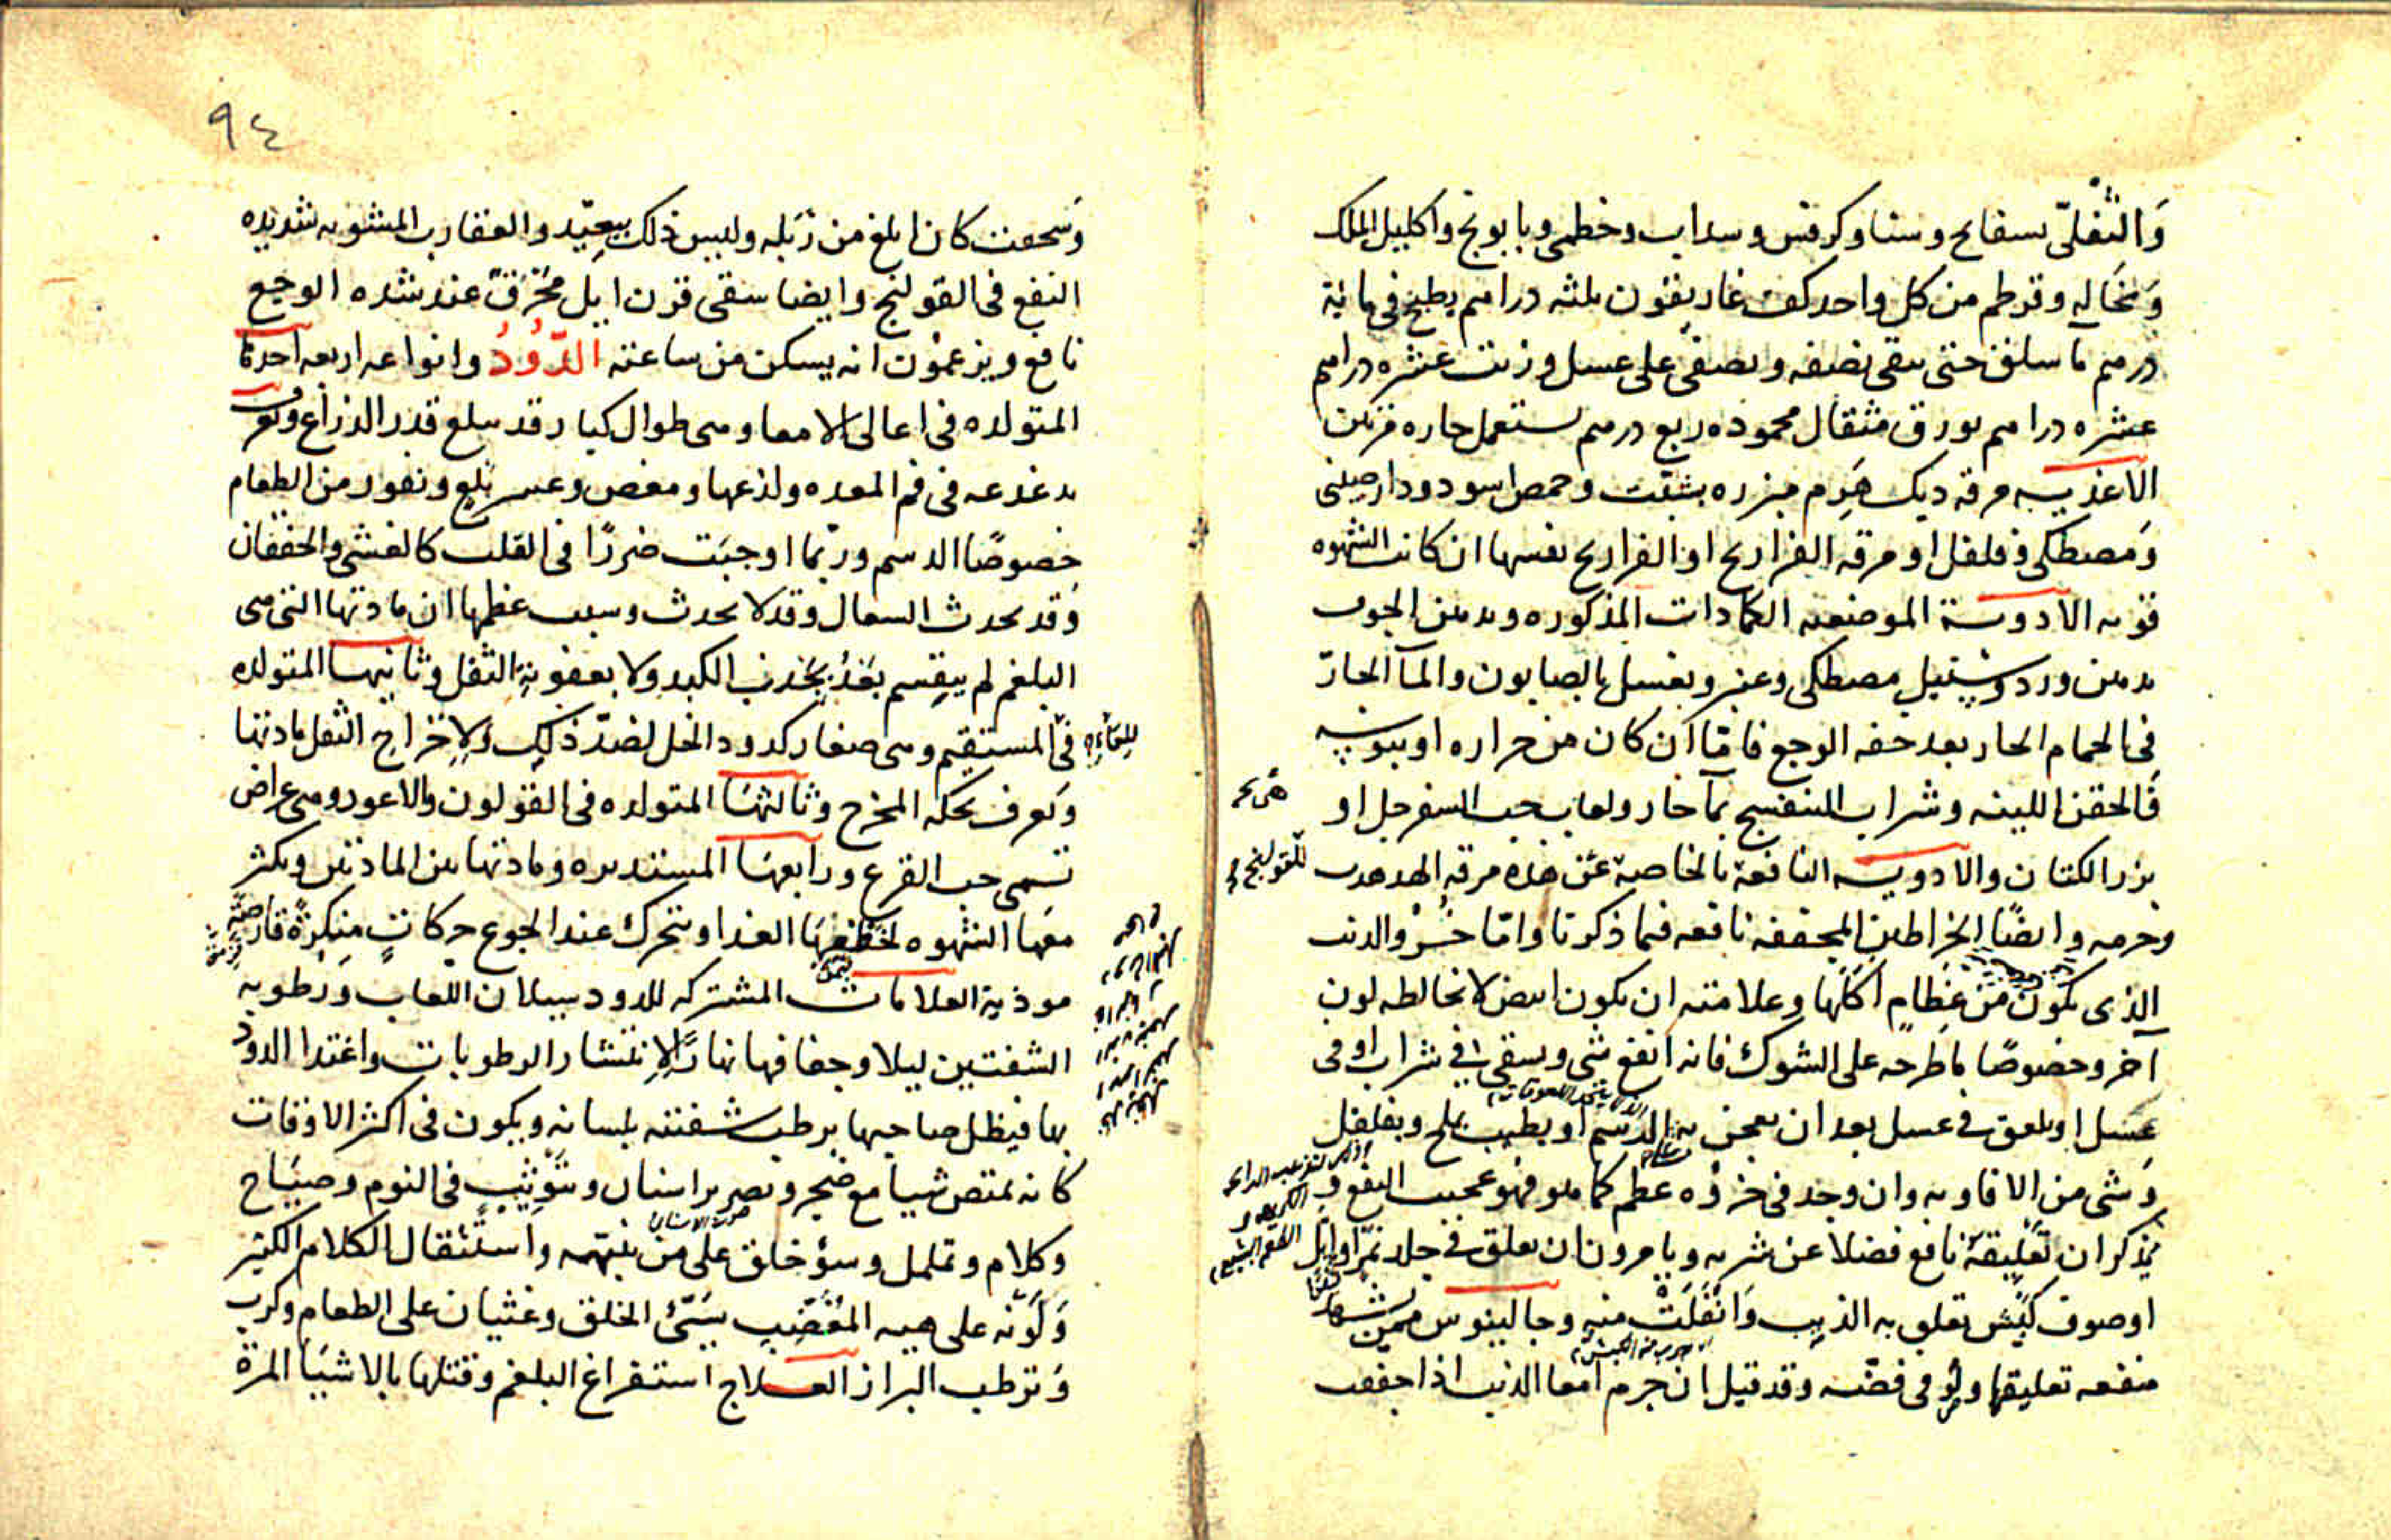 وَالثُفلىّ بسفايج وسنا وكرفس وسداب وخطمى وبابونج واكليل الملك
وَنخَاله وقرطم من كل واحد كف غاريقون ثلثه دراهم يطبخ فى مائة
درهم مآ سلق حتى يبقى نصفه ويصفى على عسل وزيت عشره دراهم
عشره دراهم بورق مثقال محموده ربع درهم يستعمل حاره مرتين
الاغذيــه مرقه ديك هَرِم مبزره بشبت وحمص اسود ودارصينى
وَمصطكى وفلفل او مرقه الفراريج او الفراريج نفسها ان كانت الشهوه
قويه الادويــة الموضعيه الكمادات المذكوره ويدهن الجوف
بدهن ورد وسنبل ومصطكى وعنبر ويغسل بالصابون والمآ الحارّ
فى الحمام الحار بعد خفه الوجع فامّا ان كان من حراره او يبوسه
فَالحقن اللينه وشراب البنفسج بمآ حار ولعاب حب السفرجل او
بزر الكتان والادويــه النافعة بالخاصية عن هذه مرقه الهدهد
للقولنج
وجرمه وايضًا الخراطين المجففه نافعه فيما ذكرنا وامّا خُرْؤ الذئب
الذى يكون من عِظامٍ اكَلَها وعلامته ان يكون ابيض لا يخالطه لون
آخر وخصوصًا ما طرحه على الشوك فانه انفع شى ويسقى فى شراب او فى
عَسل او يلعق فى عسل بعد ان يعجن به الدسم او يطيب بملح وبفلفل
وَشى من الافاويه وان وجد فى خرؤه عظم كما هو فهو عجيب النفع و
يُذكر ان تَعْلِيقَهُ نافع فضلا عن شربه ويامرون ان يعلق فى جلد نمر او ايّل
او صوف كَبْش تعلق به الذيب وَانفَلَتَ منه وجالينوس ممن يشهد
منفعه تعليقها ولو فى فضّه وقد قيل ان جرم امعا الذئب اذا جففت
٩٤
وَسحقت كان ابلغ من زبله وليس ذلك ببعِيد والعقارب المشويه شديده
النفع فى القولنج وايضا سقى قرن ايل مُحْرَق عند شده الوجع
نافع ويزعمون انه يسكن من ساعته الدُّودُ وانواعه اربعه احدها
المتولده فى اعالى الامعا وهى طوال كبار قد تبلغ قدر الذراع وتعرف
بدغدغه فى فم المعده ولذعها ومغص وعسر بَلْعٍ ونفور من الطعام
خصوصًا الدسم وربّما اوجبَت ضررًا فى القلب كالغشى والخفقان
وَقد يحدث السعال وقد لا يحدث وسبب عظمها ان مادتها التى هى
البلغم لم ينقسم بَعْدُ بجَذب الكبد ولا بعفونة الثفل وثانيهــا المتولده
فى المستقيم وهى صغار كدود الخل لضدّ ذلك وَلإخراج الثفل مادتها
وَتعرف بحكه المخرج وثالثهَا المتولده فى القولون والاعور وهى عراض
تسمى حب القرع ورابعهَا المستديره ومادتها بين المادتين ويكثر
معَها الشهوه لخطفهَا الغدا ويتحرك عند الجوع حركاتٍ منكرةً قارصَةً
موذية العلامات المشتركه للدود سيلان اللعاب وَرطوبه
الشفتين ليلا وجفافها نهارًا لإنتشار الرطوبات واغتدا الدود
بها فيظل صاحبها يرطب شفتيه بلسانه ويكون فى اكثر الاوقات
كانه يمتص شيا مع ضجر وتصرير اسنان وتَوَثّبٍ فى النوم وصيَاح
صوت الاسنان
وكلام وتململ وسؤ خلق على من ينبّهه واستثقال الكلام الكثير
وَكَونه على هييه المُغْضَب سَيّئ الخلق وغثيان على الطعام وكرب
وَترطب البراز العــلاج استفراغ البلغم وقتلها بالاشيَا المرة